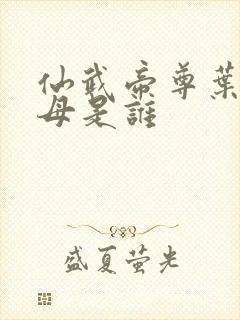 仙武帝尊葉
母是誰
盛夏萤光